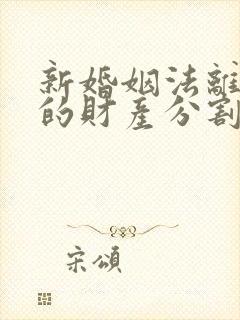 新婚姻法離
的財產分割
宋頌